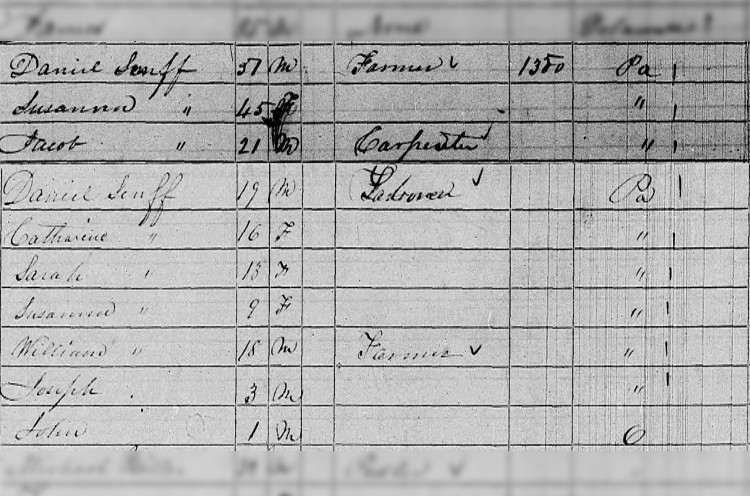 Daniel Senff 51 M Farmer 1350 Pa
Susanna " 45 F "
Jacob " 21 M Carpenter "
Daniel Senff 19 M Pa
Catharine " 16 F "
Sarah " 13 F "
Susanna " 9 F "
William " 18 M Farmer "
Joseph 3 M "
John 1 M O